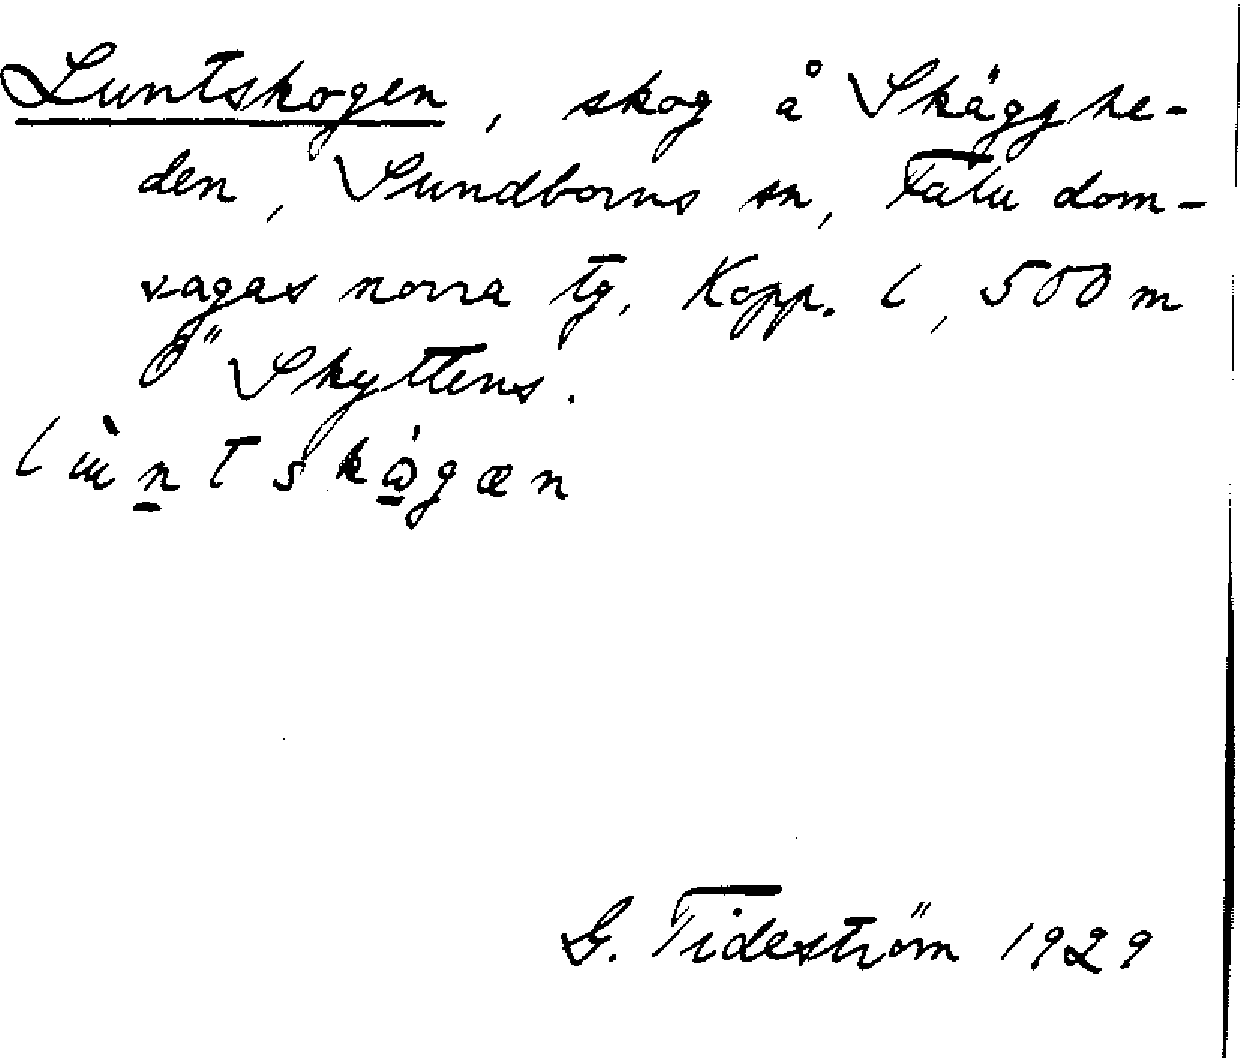 Luntskogen, skog å Skägghe-
den, Sundborns sn, Falu dom-
sagas norra tg. Kopp. l, 500 m
Ö Skyttens.
lùntskågæn
G. Tideström 1929